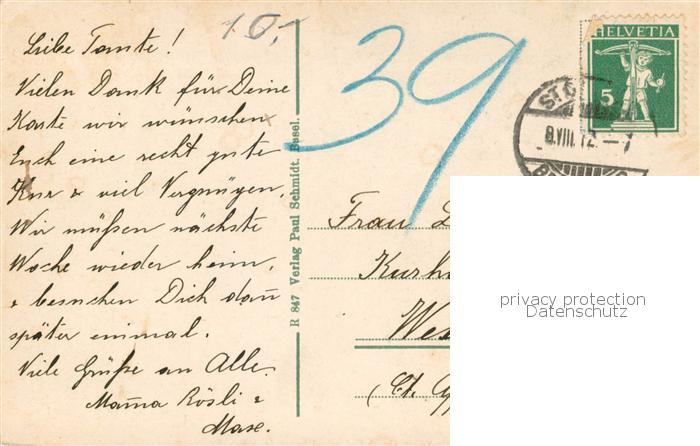 Liebe Tante!
Vielen Dank für Deine
Karte wir wünschen
Euch eine recht gute
Kur & viel Vergnügen.
Wir müßen nächste
Woche wieder heim,
& besuchen Dich dan̄
später einmal.
Viele Grüße an Alle.
Mam̄a Rösli &
Max.
10,-
39
R 847 Verlag Paul Schmidt, Basel.
HELVETIA
5
8.VIII.12.–7
Frau
privacy protection
Datenschutz